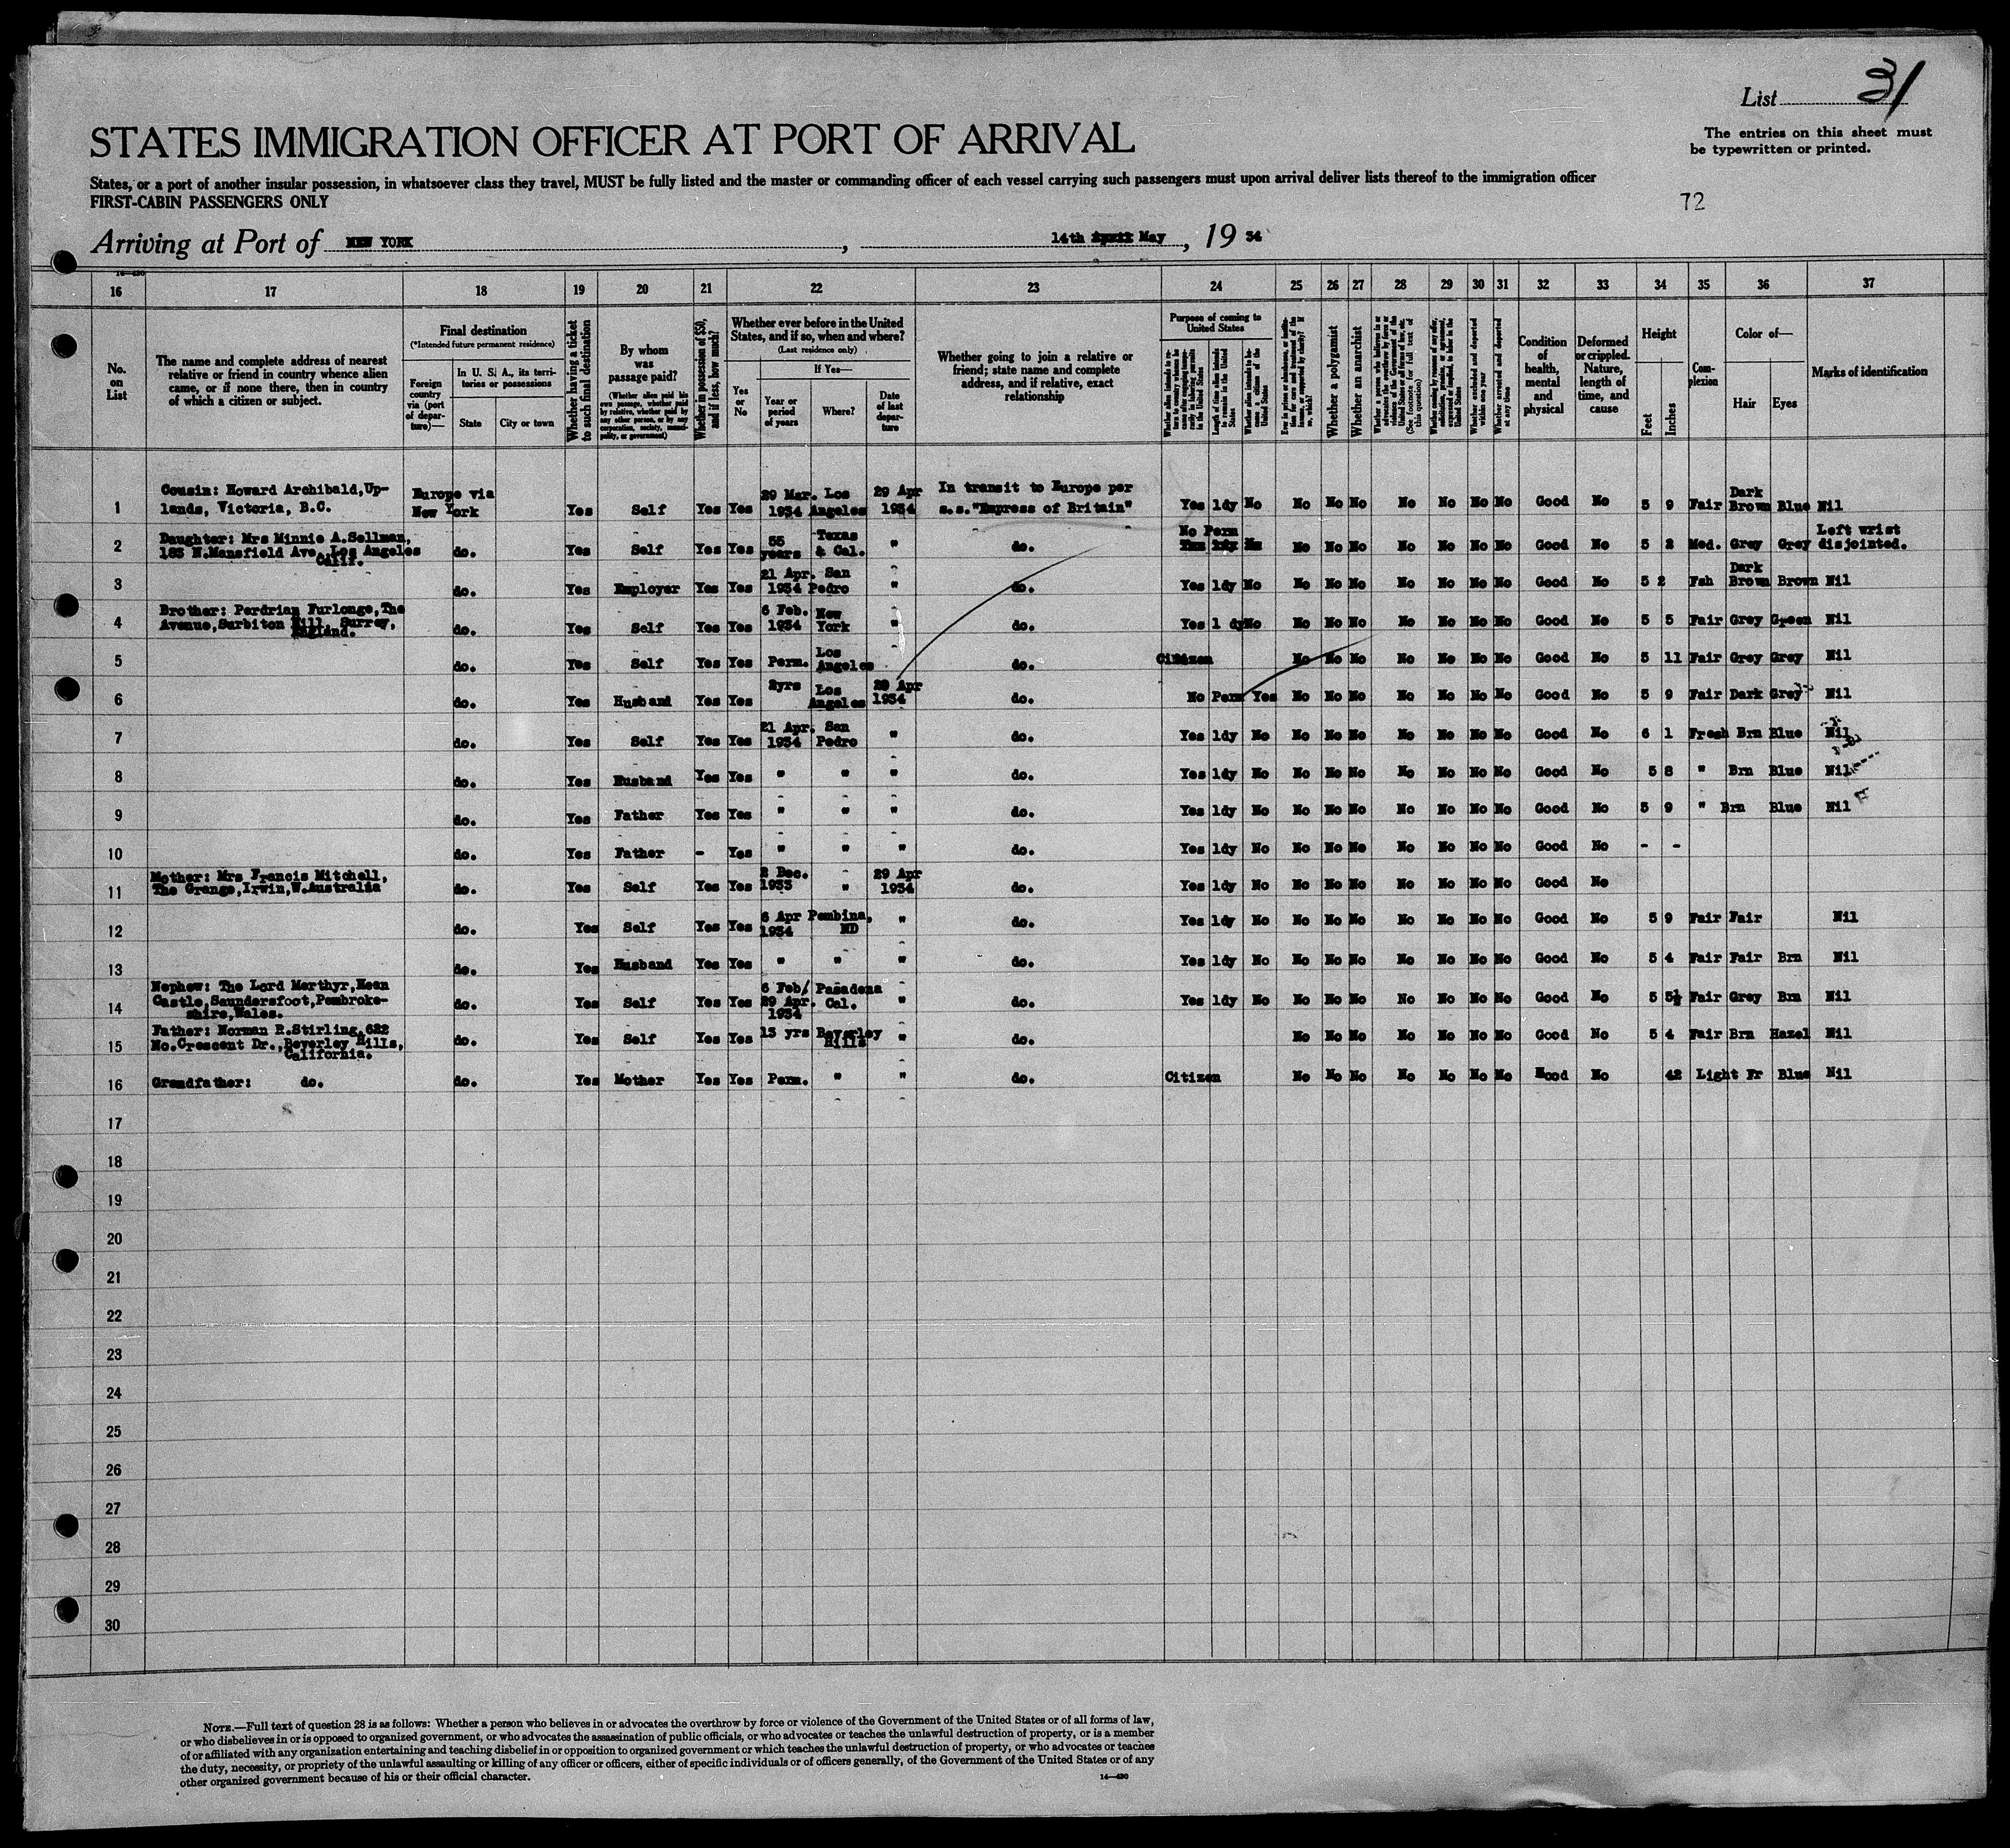 List 31
STATES IMMIGRATION OFFICER AT PORT OF ARRIVAL
The entries on this sheet must
be typewritten or printed.
States, or a port of another insular possession, in whatsoever class they travel, MUST be fully listed and the master or commanding officer of each vessel carrying such passengers must upon arrival deliver lists thereof to the immigration officer
FIRST-CABIN PASSENGERS ONLY
72
Arriving at Port of NEW YORK, 14th April May, 19 34
16 17 18 19 20 21 22 23 24 25 26 27 28 29 30 31 32 33 34 35 36 37
No. on List
The name and complete address of nearest
relative or friend in country whence alien
came, or if none there, then in country
of which a citizen or subject.
Final destination
(*Intended future permanent residence)
Foreign country via (port of departure)—
In U. S. A., its territories or possessions
State
City or town
Whether having a ticket to such final destination
By whom was passage paid?
(Whether alien paid his own passage, whether paid by relative, whether paid by any other person, or by any corporation, society, municipality, or government)
Whether in possession of $50, and if less, how much?
Whether ever before in the United
States, and if so, when and where?
(Last residence only)
Yes or No
If Yes—
Year or period of years
Where?
Date of last departure
Whether going to join a relative or
friend; state name and complete
address, and if relative, exact
relationship
Purpose of coming to United States
Length of time alien intends to remain in the United States
Whether a polygamist
Whether an anarchist
Whether arrested and deported at any time
Condition of health, mental and physical
Deformed or crippled. Nature, length of time, and cause
Height
Feet
Inches
Complexion
Color of—
Hair
Eyes
Marks of identification
1 Cousin: Howard Archibald, Up- lands, Victoria, B.C. Europe via New York Yes Self Yes Yes 29 Mar. 1934 Los Angeles 29 Apr 1934 In transit to Europe per s.s. "Empress of Britain" Yes 1dy No No No No No No No No Good No 5 9 Fair Dark Brown Blue Nil
2 Daughter: Mrs Minnie A. Sellman, 183 N. Mansfield Ave. Los Angeles Calif. do. Yes Self Yes Yes 55 years Texas & Cal. " do. No Perm No No No No No No No Good No 5 2 Med. Grey Grey Left wrist disjointed.
3 do. Yes Employer Yes Yes 21 Apr. 1934 San Pedro " do. Yes 1dy No No No No No No No No Good No 5 2 Fsh Dark Brown Brown Nil
4 Brother: Perdrian Furlonge, The Avenue, Surbiton Hill, Surrey, England. do. Yes Self Yes Yes 6 Feb. 1934 New York " do. Yes 1 dy No No No No No No No No Good No 5 5 Fair Grey Green Nil
5 do. Yes Self Yes Yes Perm. Los Angeles do. Citizen No No No No No No No Good No 5 11 Fair Grey Grey Nil
6 do. Yes Husband Yes Yes 2yrs Los Angeles 29 Apr 1934 do. No Perm Yes No No No No No No No Good No 5 9 Fair Dark Grey Nil
7 do. Yes Self Yes Yes 21 Apr. 1934 San Pedro " do. Yes 1dy No No No No No No No No Good No 6 1 Fresh Brn Blue Nil
8 do. Yes Husband Yes Yes " " " do. Yes 1dy No No No No No No No No Good No 5 8 " Brn Blue Nil
9 do. Yes Father Yes Yes " " " do. Yes 1dy No No No No No No No No Good No 5 9 " Brn Blue Nil
10 do. Yes Father - Yes " " " do. Yes 1dy No No No No No No No No Good No - -
11 Mother: Mrs Francis Mitchell, The Grange, Irwin, W. Australia do. Yes Self Yes Yes 2 Dec. 1933 " 29 Apr 1934 do. Yes 1dy No No No No No No No No Good No
12 do. Yes Self Yes Yes 6 Apr 1934 Pembina, ND " do. Yes 1dy No No No No No No No No Good No 5 9 Fair Fair Nil
13 do. Yes Husband Yes Yes " " " do. Yes 1dy No No No No No No No No Good No 5 4 Fair Fair Brn Nil
14 Nephew: The Lord Merthyr, Hean Castle, Saundersfoot, Pembroke- shire, Wales. do. Yes Self Yes Yes 6 Feb/ 29 Apr. 1934 Pasadena Cal. " do. Yes 1dy No No No No No No No No Good No 5 5½ Fair Grey Brn Nil
15 Father: Norman R. Stirling, 622 No. Crescent Dr., Beverley Hills, California. do. Yes Self Yes Yes 13 yrs Beverley Hills " do. No No No No No No No Good No 5 4 Fair Brn Hazel Nil
16 Grandfather: do. do. Yes Mother Yes Yes Perm. " " do. Citizen No No No No No No No Hood No 42 Light Fr Blue Nil
17
18
19
20
21
22
23
24
25
26
27
28
29
30
NOTE.—Full text of question 28 is as follows: Whether a person who believes in or advocates the overthrow by force or violence of the Government of the United States or of all forms of law,
or who disbelieves in or is opposed to organized government, or who advocates the assassination of public officials, or who advocates or teaches the unlawful destruction of property, or is a member
of or affiliated with any organization entertaining and teaching disbelief in or opposition to organized government or which teaches the unlawful destruction of property, or who advocates or teaches
the duty, necessity, or propriety of the unlawful assaulting or killing of any officer or officers, either of specific individuals or of officers generally, of the Government of the United States or of any
other organized government because of his or their official character.
14—430